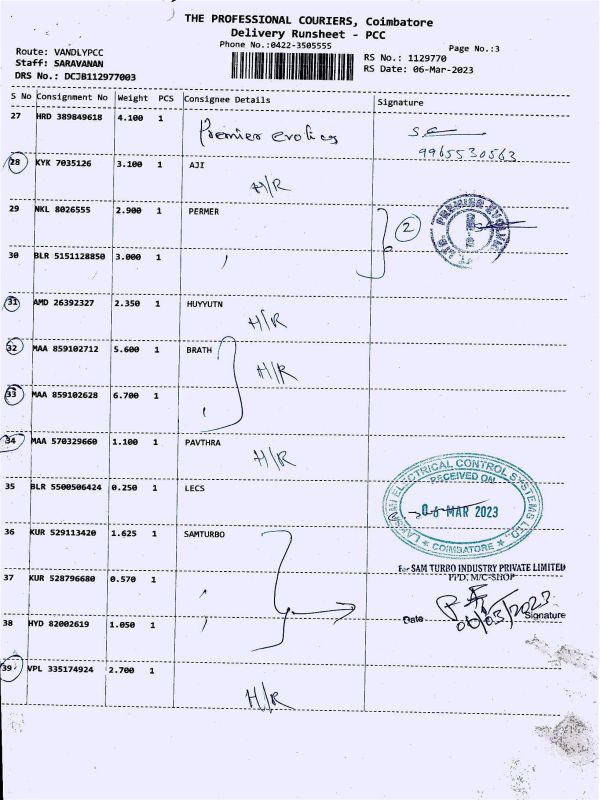 THE PROFESSIONAL COURIERS, Coimbatore
Delivery Runsheet - PCC
Phone No.:0422-3505555
Page No.:3
Route: VANDLYPCC
Staff: SARAVANAN
DRS No.: DCJB112977003
RS No.: 1129770
RS Date: 06-Mar-2023
S No Consignment No Weight PCS Consignee Details Signature
27 HRD 389849618 4.100 1 Premier evolics
9965530563
28 KYK 7035126 3.100 1 AJI
H/R
29 NKL 8026555 2.900 1 PERMER
2
30 BLR 5151128850 3.000 1
31 AMD 26392327 2.350 1 HUYYUTN
H/R
32 MAA 859102712 5.600 1 BRATH
H/R
33 MAA 859102628 6.700 1
34 MAA 570329660 1.100 1 PAVTHRA
H/R
35 BLR 5500506424 0.250 1 LECS
LAKSHMI ELECTRICAL CONTROL SYSTEMS LTD.,
RECEIVED ON
06 MAR 2023
COIMBATORE
36 KUR 529113420 1.625 1 SAMTURBO
For SAM TURBO INDUSTRY PRIVATE LIMITED
PPD, M/C-SHOP
37 KUR 528796680 0.570 1
Date 06/03/2023 Signature
38 HYD 82002619 1.050 1
39 VPL 335174924 2.700 1
H/R